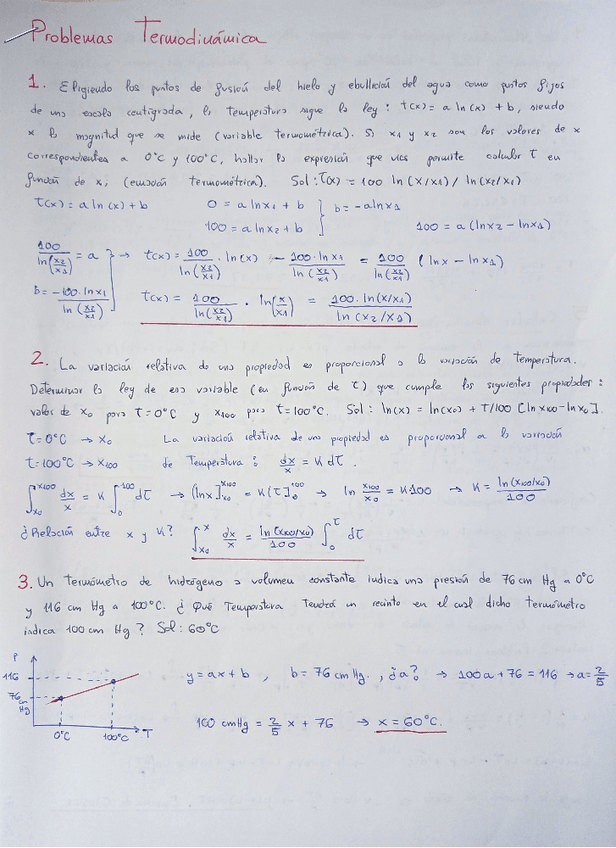 Problemas Termodinámica
1. Eligiendo los puntos de fusión del hielo y ebullición del agua como puntos fijos
de una escala centígrada, la temperatura sigue la ley: t(x) = a ln(x) + b, siendo
x la magnitud que se mide (variable termométrica). Si x1 y x2 son los valores de x
correspondientes a 0°C y 100°C, hallar la expresión que nos permite calcular t en
función de x; (ecuación termométrica). Sol: t(x) = 100 ln(x/x1) / ln(x2/x1)
t(x) = a ln(x) + b   0 = a lnx1 + b   } b = -a lnx1
100 = a lnx2 + b   100 = a (lnx2 - lnx1)
100/ln(x2/x1) = a } → t(x) = 100/ln(x2/x1) · ln(x) - 100·lnx1/ln(x2/x1) = 100/ln(x2/x1) (lnx - lnx1)
b = -100·lnx1/ln(x2/x1)   t(x) = 100/ln(x2/x1) · ln(x/x1) = 100·ln(x/x1)/ln(x2/x1)
2. La variación relativa de una propiedad es proporcional a la variación de temperatura.
Determinar la ley de esa variable (en función de t) que cumple las siguientes propiedades:
valor de x0 para t=0°C y x100 para t=100°C. Sol: ln(x) = ln(x0) + t/100 [ln x100 - ln x0].
t=0°C → x0   La variación relativa de una propiedad es proporcional a la variación
t=100°C → x100   de Temperatura: dx/x = K dt.
∫_x0^x100 dx/x = K ∫_0^100 dt → [lnx]_x0^x100 = K[t]_0^100 → ln x100/x0 = K100 → K = ln(x100/x0)/100
¿Relación entre x y K? ∫_x0^x dx/x = ln(x100/x0)/100 ∫_0^t dt
3. Un termómetro de hidrógeno a volumen constante indica una presión de 76 cm Hg a 0°C
y 116 cm Hg a 100°C. ¿Qué Temperatura tendrá un recinto en el cual dicho termómetro
indica 100 cm Hg? Sol: 60°C
P
116
76 cm Hg
0°C   100°C   T
y = ax + b, b = 76 cm Hg., ¿a? → 100a + 76 = 116 → a = 2/5
100 cmHg = 2/5 x + 76 → x = 60°C.